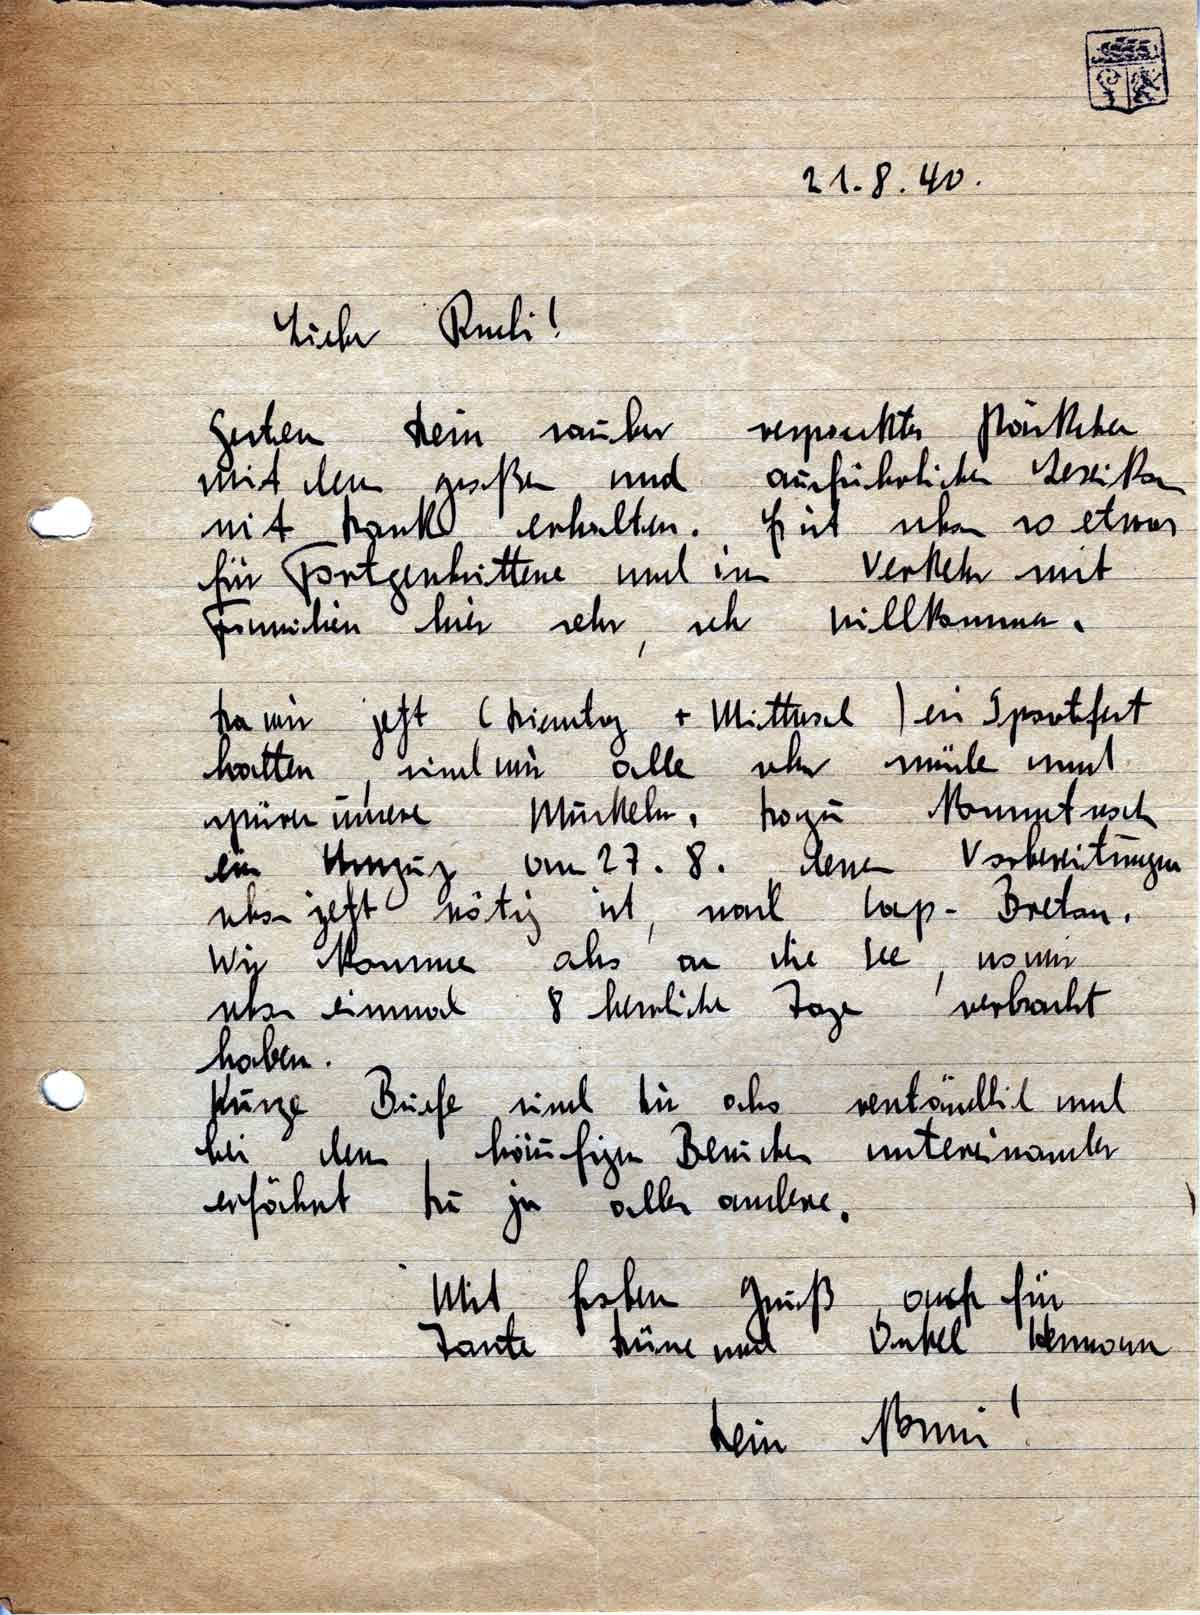 21.8.40.
Lieber Rudi!
Gestern Dein sauber verpacktes Päckchen
mit dem großen und ausführlichen Lexikon
mit Dank erhalten. Es ist schon so etwas
für Fortgeschrittene und im Verkehr mit
Familien hier sehr, sehr willkommen.
Da wir jetzt (Dienstag + Mittwoch) ein Sportfest
hatten, sind wir alle sehr müde und
spüren unsere Muskeln. Dazu kommt noch
ein Umzug am 27.8., dessen Vorbereitungen
schon jetzt nötig ist, nach Cap-Breton.
Wir kommen also an die See, wo wir
schon einmal 8 herrliche Tage verbracht
haben.
Kurze Briefe sind Dir also verständlich und
bei den häufigen Besuchen untereinander
erfährst Du ja alles andere.
Mit frohem Gruß, auch für
Tante und Onkel Hermann
Dein